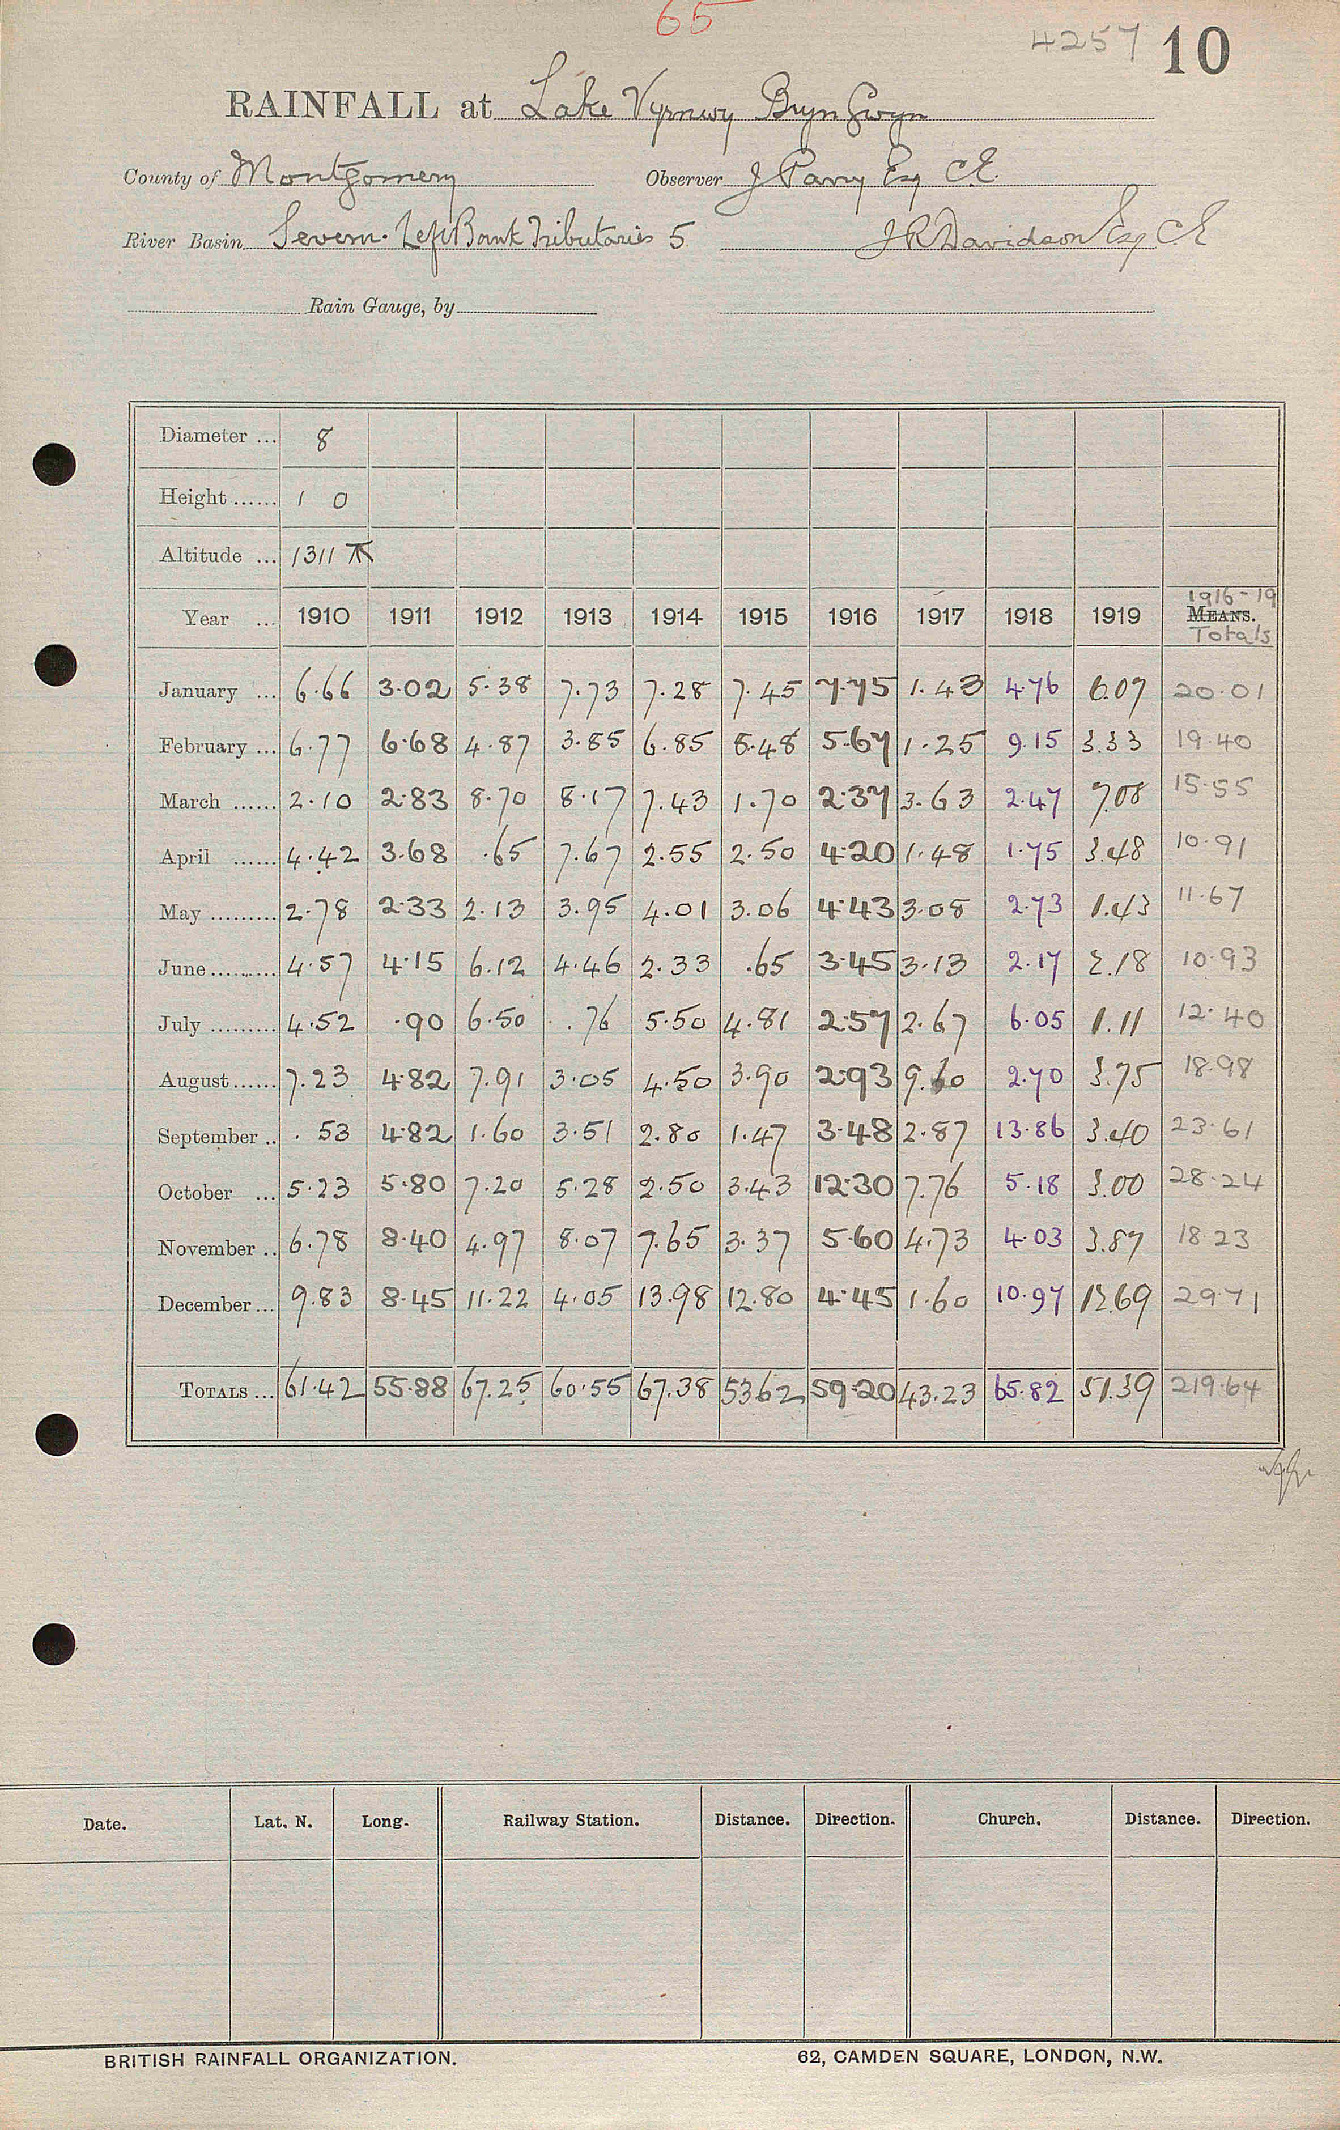 65
4257 10
RAINFALL at Lake Vyrnwy Bryn Gwyn
County of Montgomery Observer J Parry Esq CE
River Basin Severn. Left Bank Tributaries 5 J R Davidson Esq CE
Rain Gauge, by
Diameter ... 8
Height ...... 1 0
Altitude ... 1311
1916-19
Year ... 1910 1911 1912 1913 1914 1915 1916 1917 1918 1919 MEANS.
Totals
January ... 6.66 3.02 5.38 7.73 7.28 7.45 7.75 1.43 4.76 6.07 20.01
February ... 6.77 6.68 4.87 3.85 6.85 8.48 5.67 1.25 9.15 3.33 19.40
March ...... 2.10 2.83 8.70 8.17 7.43 1.70 2.37 3.63 2.47 7.08 15.55
April ...... 4.42 3.68 .65 7.67 2.55 2.50 4.20 1.48 1.75 3.48 10.91
May ......... 2.78 2.33 2.13 3.95 4.01 3.06 4.43 3.08 2.73 1.43 11.67
June ......... 4.57 4.15 6.12 4.46 2.33 .65 3.45 3.13 2.17 2.18 10.93
July ......... 4.52 .90 6.50 .76 5.50 4.81 2.57 2.67 6.05 1.11 12.40
August ...... 7.23 4.82 7.91 3.05 4.50 3.90 2.93 9.60 2.70 3.75 18.98
September .. .53 4.82 1.60 3.51 2.80 1.47 3.48 2.87 13.86 3.40 23.61
October ... 5.23 5.80 7.20 5.28 2.50 3.43 12.30 7.76 5.18 3.00 28.24
November .. 6.78 8.40 4.97 8.07 7.65 3.37 5.60 4.73 4.03 3.87 18.23
December ... 9.83 8.45 11.22 4.05 13.98 12.80 4.45 1.60 10.97 12.69 29.71
TOTALS ... 61.42 55.88 67.25 60.55 67.38 53.62 59.20 43.23 65.82 51.39 219.64
Date. Lat. N. Long. Railway Station. Distance. Direction. Church. Distance. Direction.
BRITISH RAINFALL ORGANIZATION. 62, CAMDEN SQUARE, LONDON, N.W.